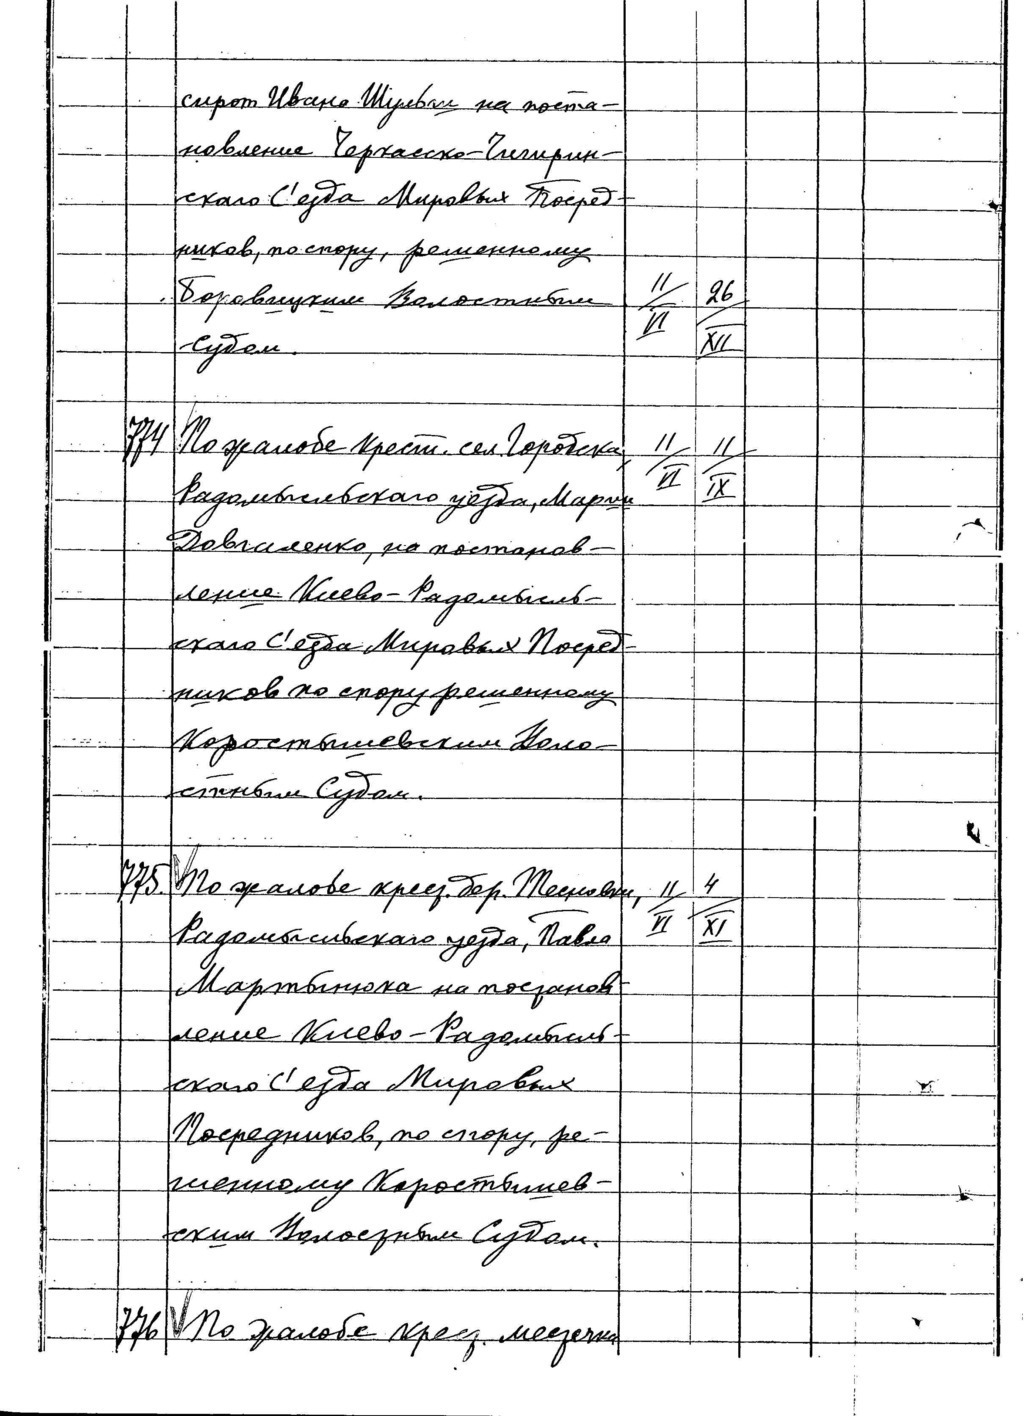 сирот Ивана Шульги на поста-
новление Черкасско-Чигирин-
скаго С'езда Мировых Посред-
ников, по спору, решенному
Боровицким Волостным 11/VI 26/XII
Судом.
774 По жалобе крест. сел. Городска, 11/VI 11/IX
Радомысльскаго уезда, Марии
Довгаленко, на постанов-
ление Киево-Радомысль-
скаго С'езда Мировых Посред-
ников по спору решенному
Коростышевским Воло-
стным Судом.
775. По жалобе крест. дер. Тесновки, 11/VI 4/XI
Радомысльскаго уезда, Павла
Мартынюка на постанов-
ление Киево-Радомысль-
скаго С'езда Мировых
Посредников, по спору, ре-
шенному Коростышев-
ским Волостным Судом.
776 По жалобе крест. местечка